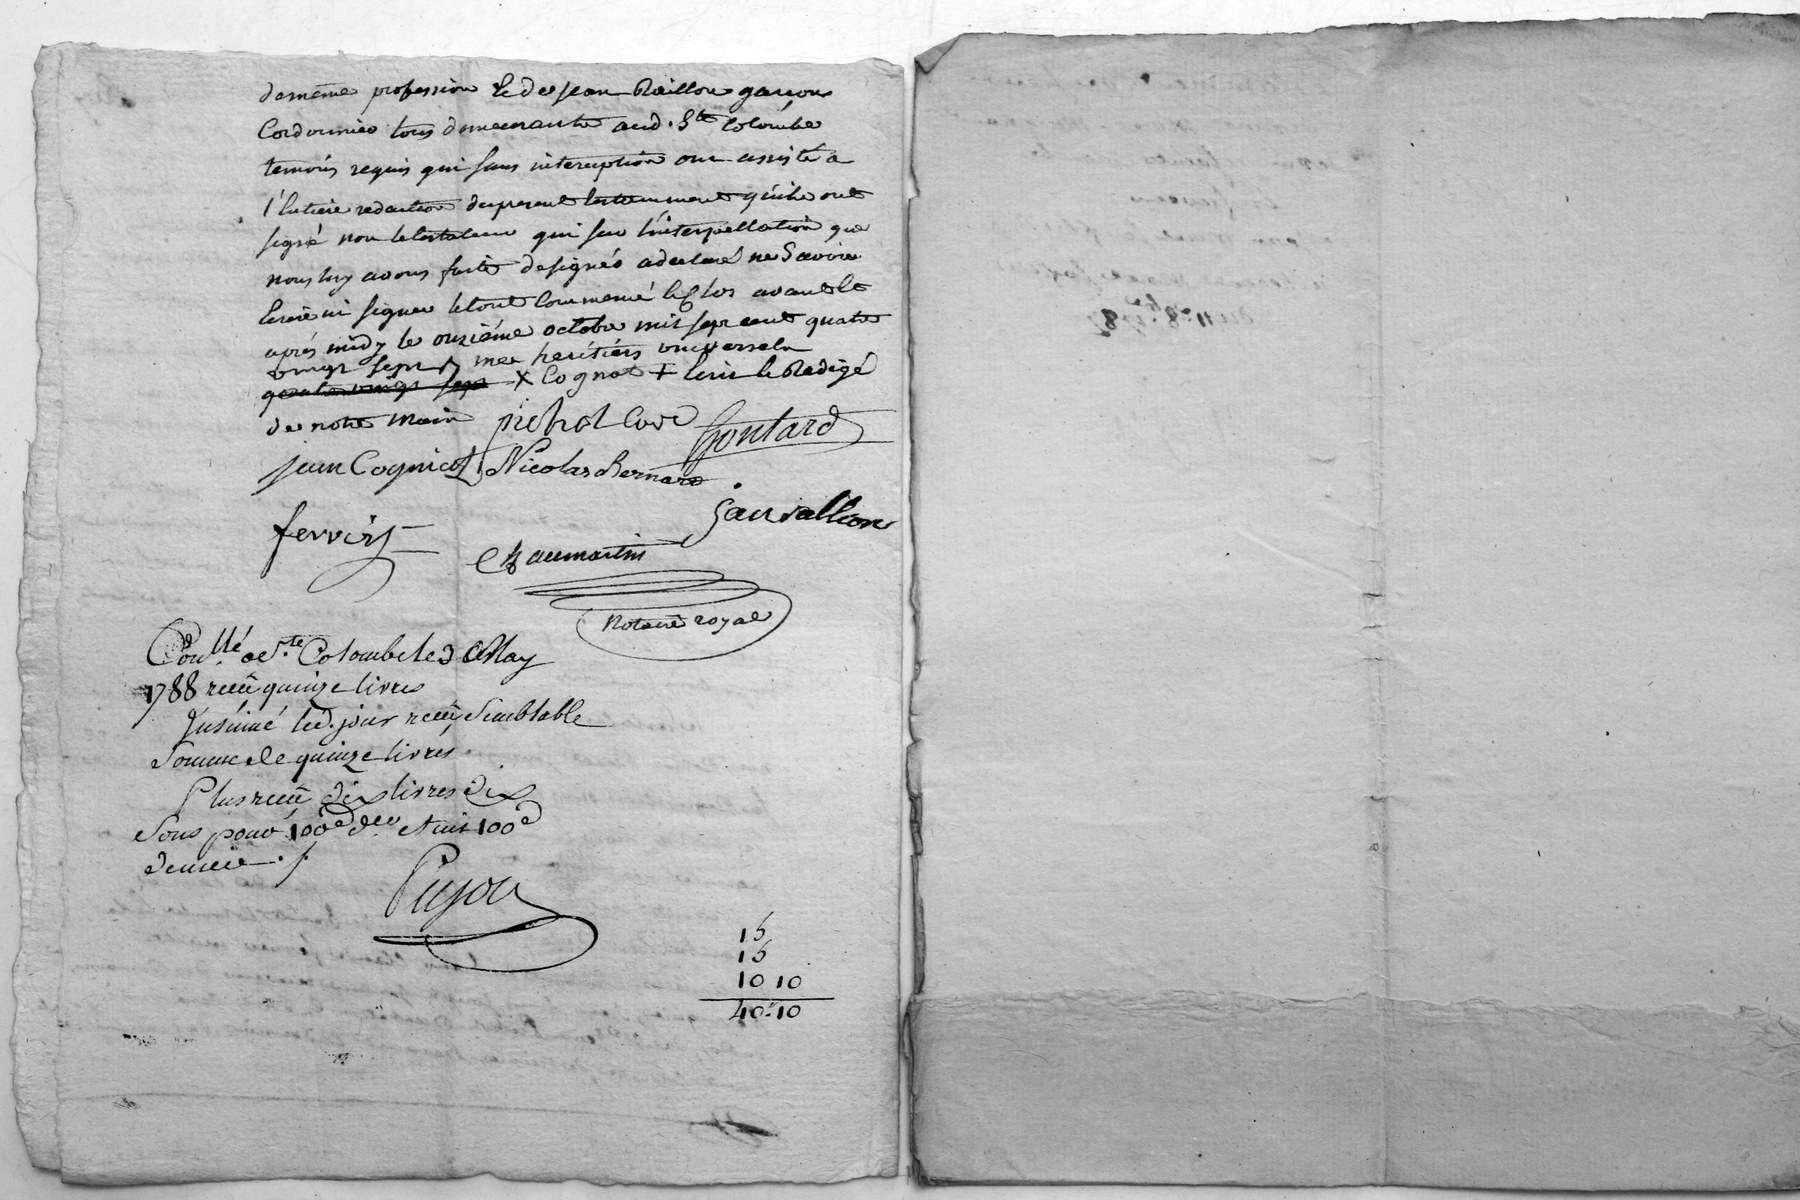 de même profession & de Jean Vaillon garçon
Cordonnier tous demeurants aud. Ste Colombe
temoins requis qui sans interruption ont assisté a
l'entiere redaction du present testement qu'ils ont
signé non le testateur qui sur l'interpellation que
nous luy avons faite de signer a declaré ne savoir
Ecrire ni signer le tout commencé & clos avant et
après midy le onzième octobre mil sept cent quatre
vingt sept mes heritiers universels
quatre vingt sept X Cognat + Ecrit & Redigé
de notre main pichol Curé Goutard
jean Cognicot Nicolas Bernard
jan vallion
ferrier
Chaumartin
Notaire royal
Conllé a Ste Colombe le 3 May
1788 reçu quinze livres
Insinué led. jour reçu Semblable
Somme de quinze livres
Plus reçu dix livres dix
Sous pour 100e den et uit 100e
denier ./.
Pujol
15
15
10 10
40-10
du 11 8bre 1787